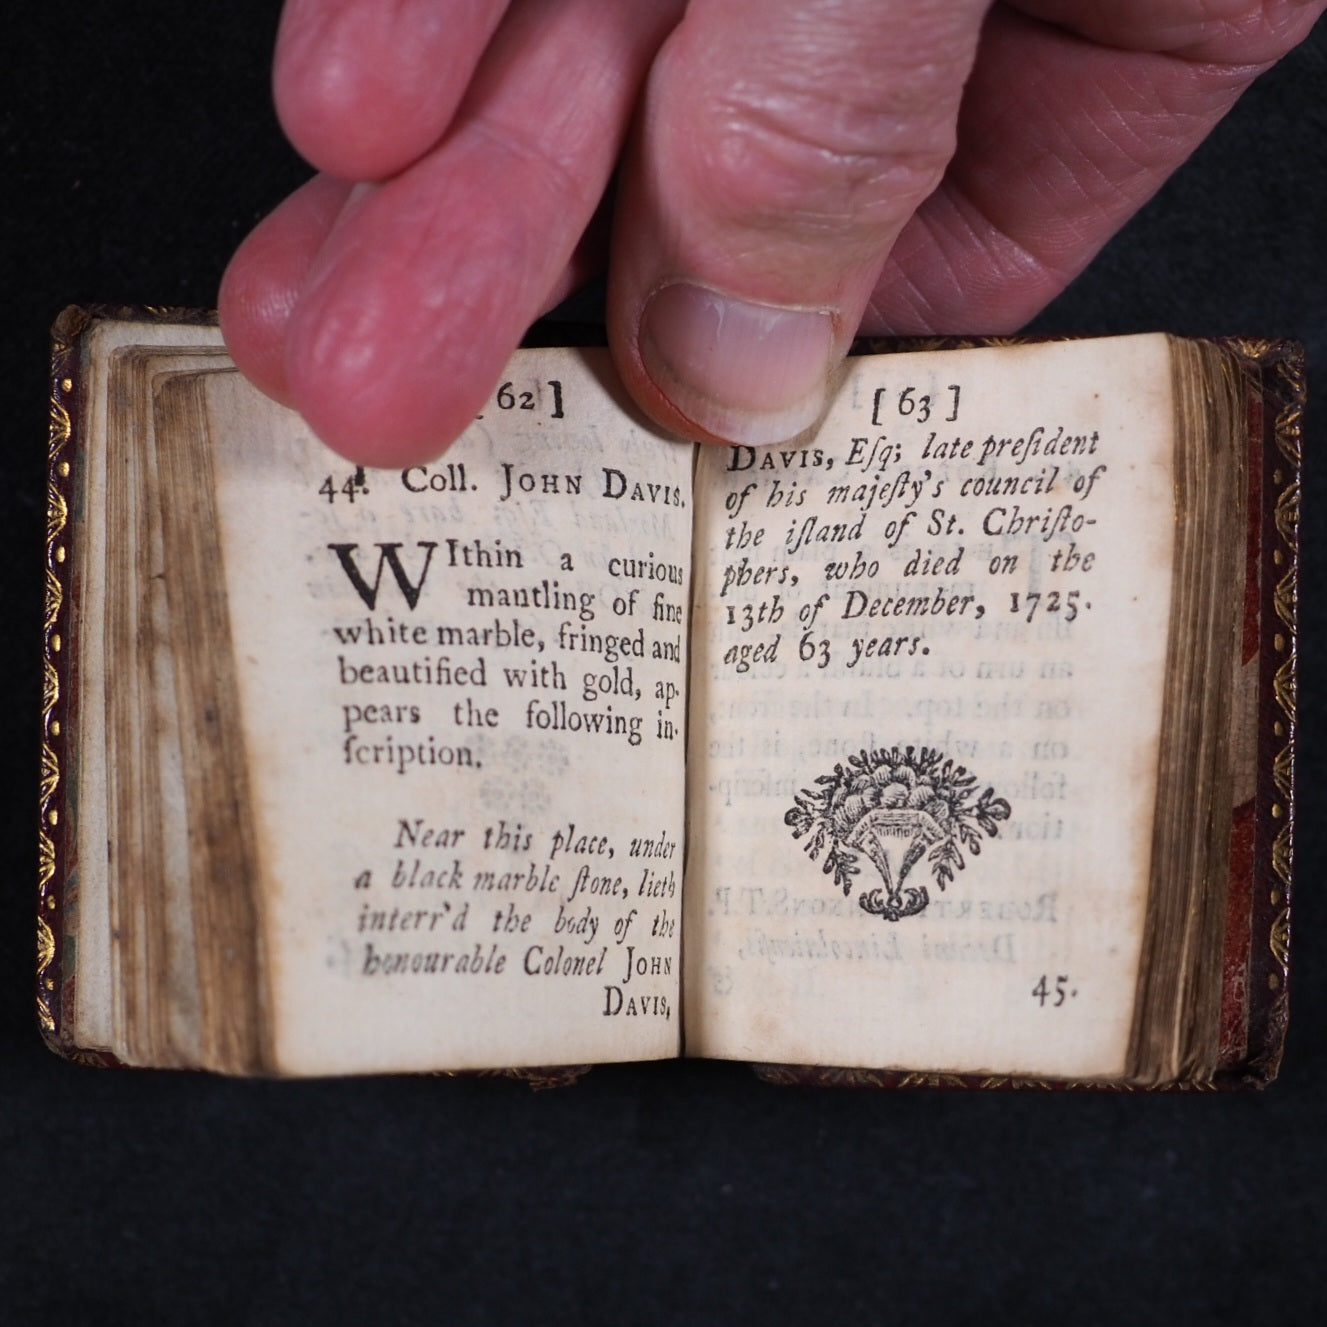 62 ]
44. Coll. JOHN DAVIS.
WIthin a curious
mantling of fine
white marble, fringed and
beautified with gold, ap-
pears the following in-
ſcription.
Near this place, under
a black marble ſtone, lieth
interr'd the body of the
honourable Colonel JOHN
DAVIS,
[ 63 ]
DAVIS, Eſq; late preſident
of his majeſty's council of
the iſland of St. Chriſto-
phers, who died on the
13th of December, 1725.
aged 63 years.
45.